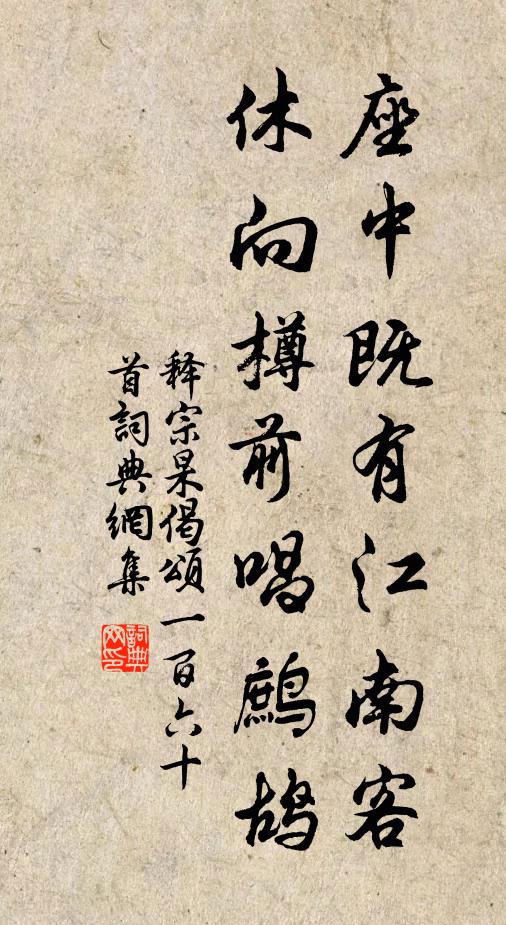 座中既有江南客
休向樽前唱鹧鸪
释宗杲偈頌一百六十
首詞典網集
詞典
网印